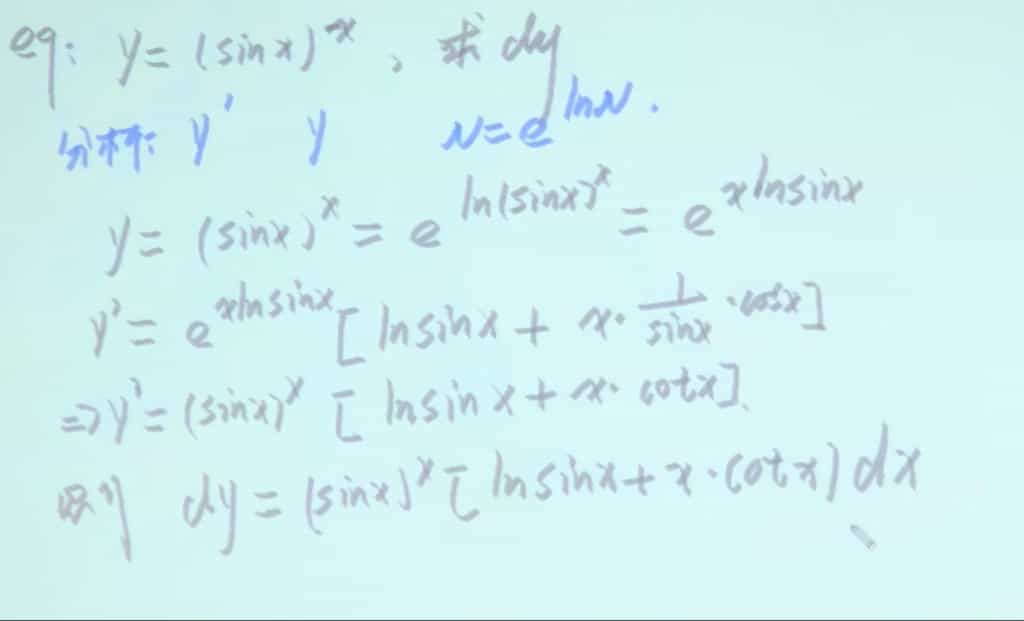 eg: y = (sinx)^x , 求 dy
分析: y' y N = e^{lnN}.
y = (sinx)^x = e^{ln(sinx)^x} = e^{xlnsinx}
y' = e^{xlnsinx} [lnsinx + x·\frac{1}{sinx}·cosx]
=> y' = (sinx)^x [lnsinx + x·cotx].
则 dy = (sinx)^x [lnsinx + x·cotx) dx